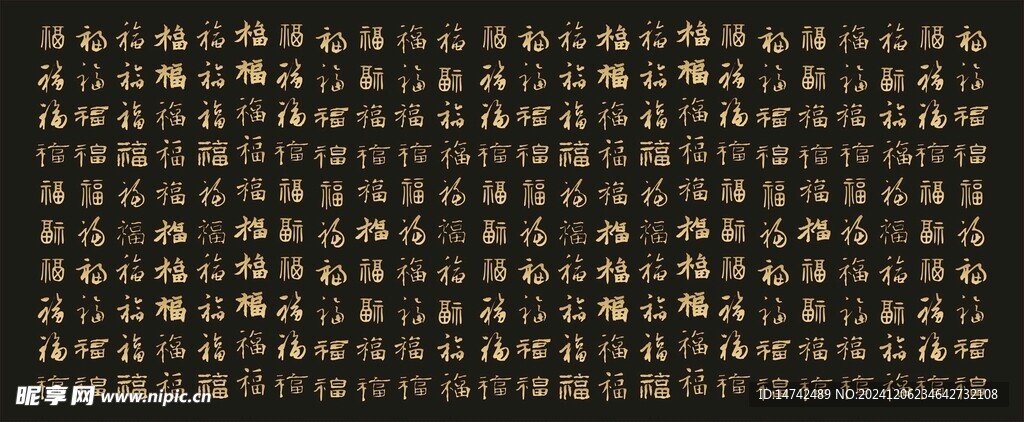 福福福福福福福福福福福福福福福福福福福福福福福福
福福福福福福福福福福福福福福福福福福福福福福福福
福福福福福福福福福福福福福福福福福福福福福福福福
福福福福福福福福福福福福福福福福福福福福福福福福
福福福福福福福福福福福福福福福福福福福福福福福福
福福福福福福福福福福福福福福福福福福福福福福福福
福福福福福福福福福福福福福福福福福福福福福福福福
福福福福福福福福福福福福福福福福福福福福福福福福
福福福福福福福福福福福福福福福福福福福福福福福福
福福福福福福福福福福福福福福福福福福福福福福福福
昵享网 www.nipic.cn
ID:14742489 NO:20241206234642732108